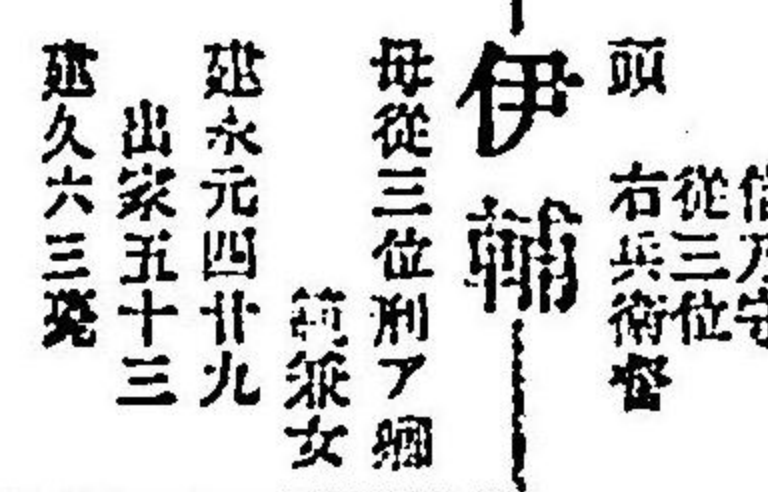 信乃守
從三位
頭
右兵衛督
伊輔
母從三位刑ア卿
範兼女
建永元四廿九
出家五十三
建久六三薨